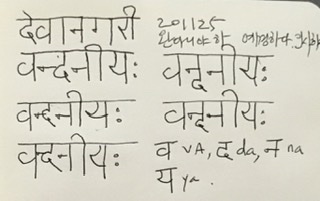 देवानगरी 201125
완다니야하 예경하다.
वन्दनीयः वन्दनीयः
वन्दनीयः वन्दनीयः
व vA, द da, न na
य ya